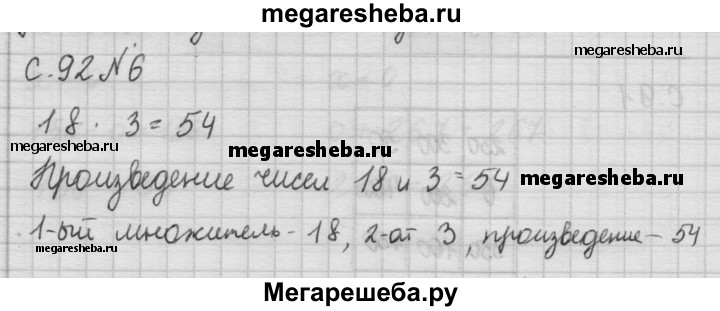 megaresheba.ru
с. 92 №6
megaresheba.ru
18 · 3 = 54
megaresheba.ru
megaresheba.ru
Произведение чисел 18 и 3 = 54
megaresheba.ru
1-ый множитель - 18, 2-ой 3, произведение - 54
megaresheba.ru
megaresheba.ru
Мегарешеба.ру